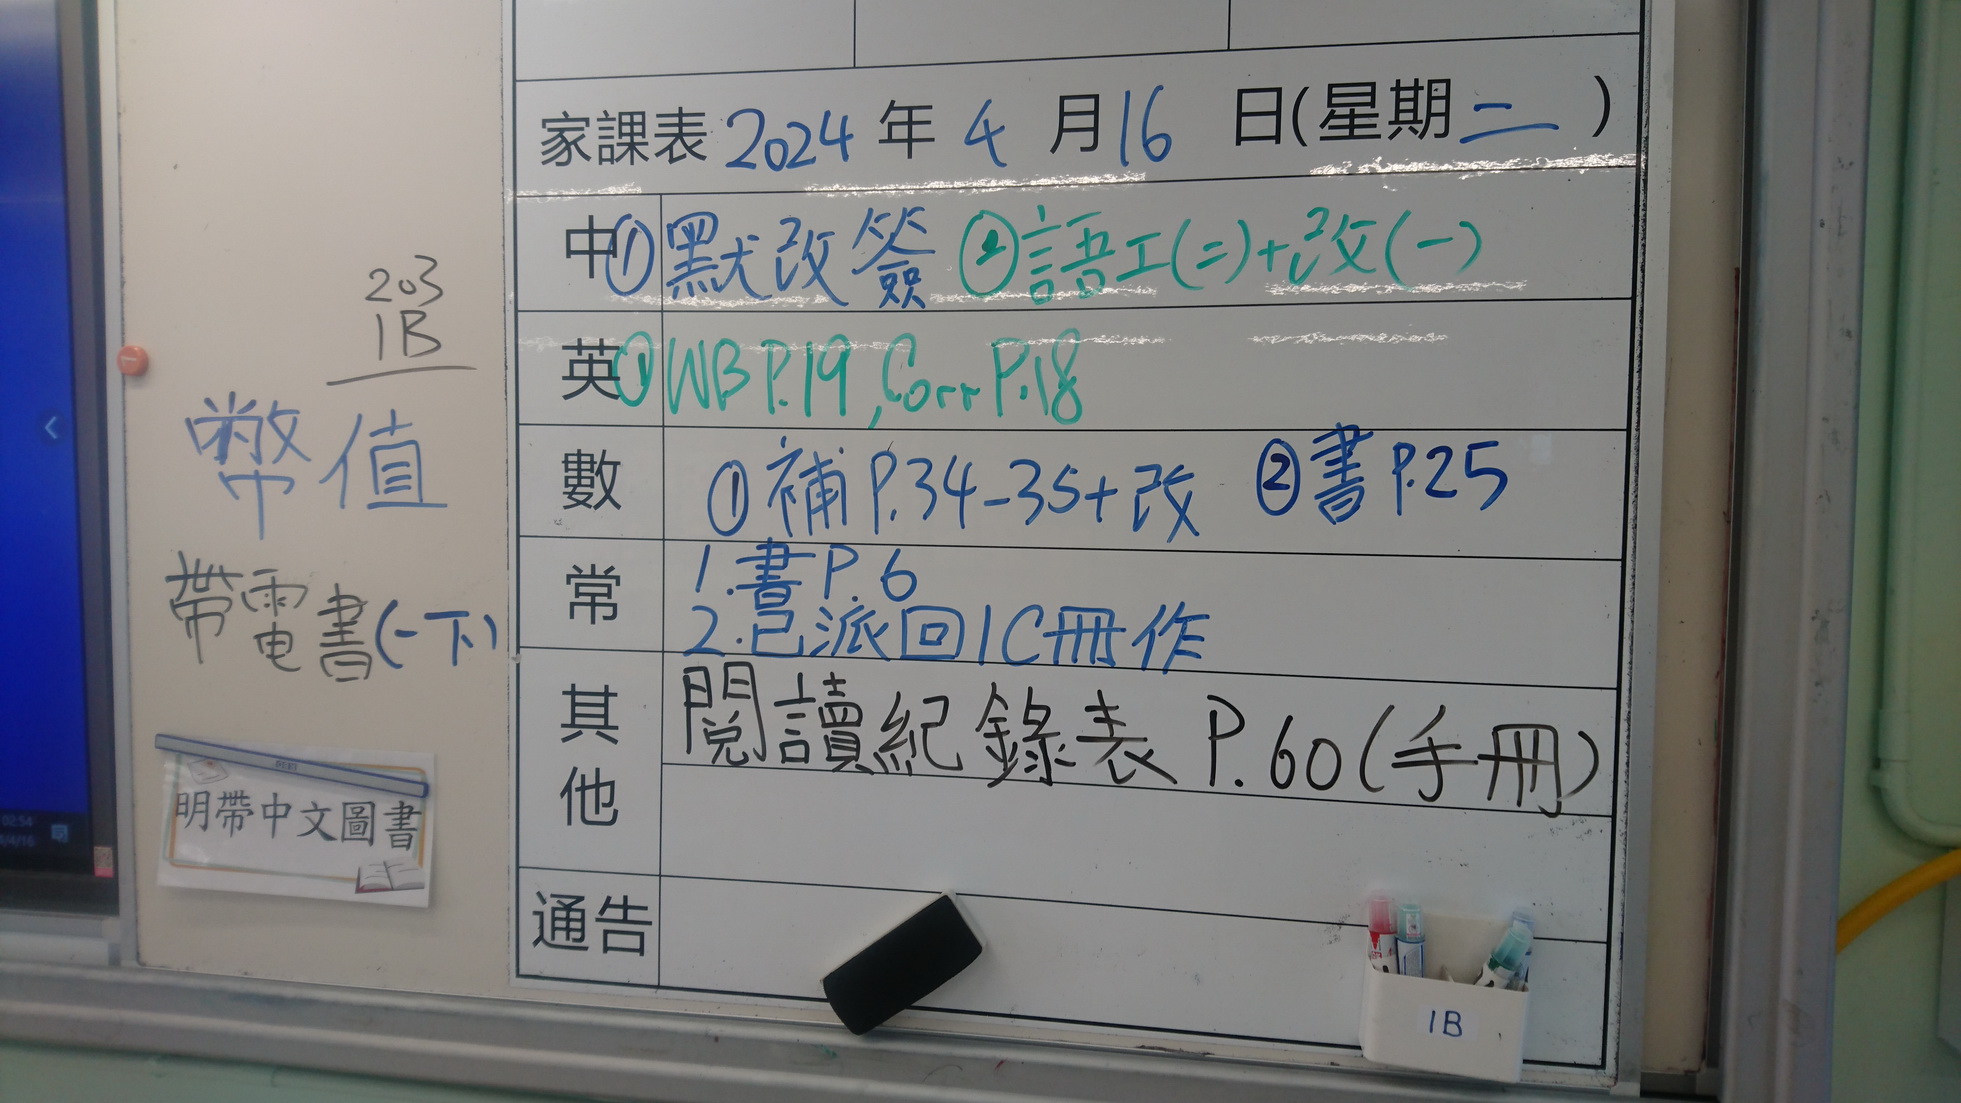 203
1B
幣值
帶電書(一下)
明帶中文圖書
家課表 2024 年 4 月 16 日(星期二)
中 ①默改簽 ②語工(二)+改(一)
英 ①WB P.19, Corr P.18
數 ①補 P.34-35+改 ②書 P.25
常 1.書 P.6
2.已派回1C冊作
其他 閱讀紀錄表 P.60(手冊)
通告
1B